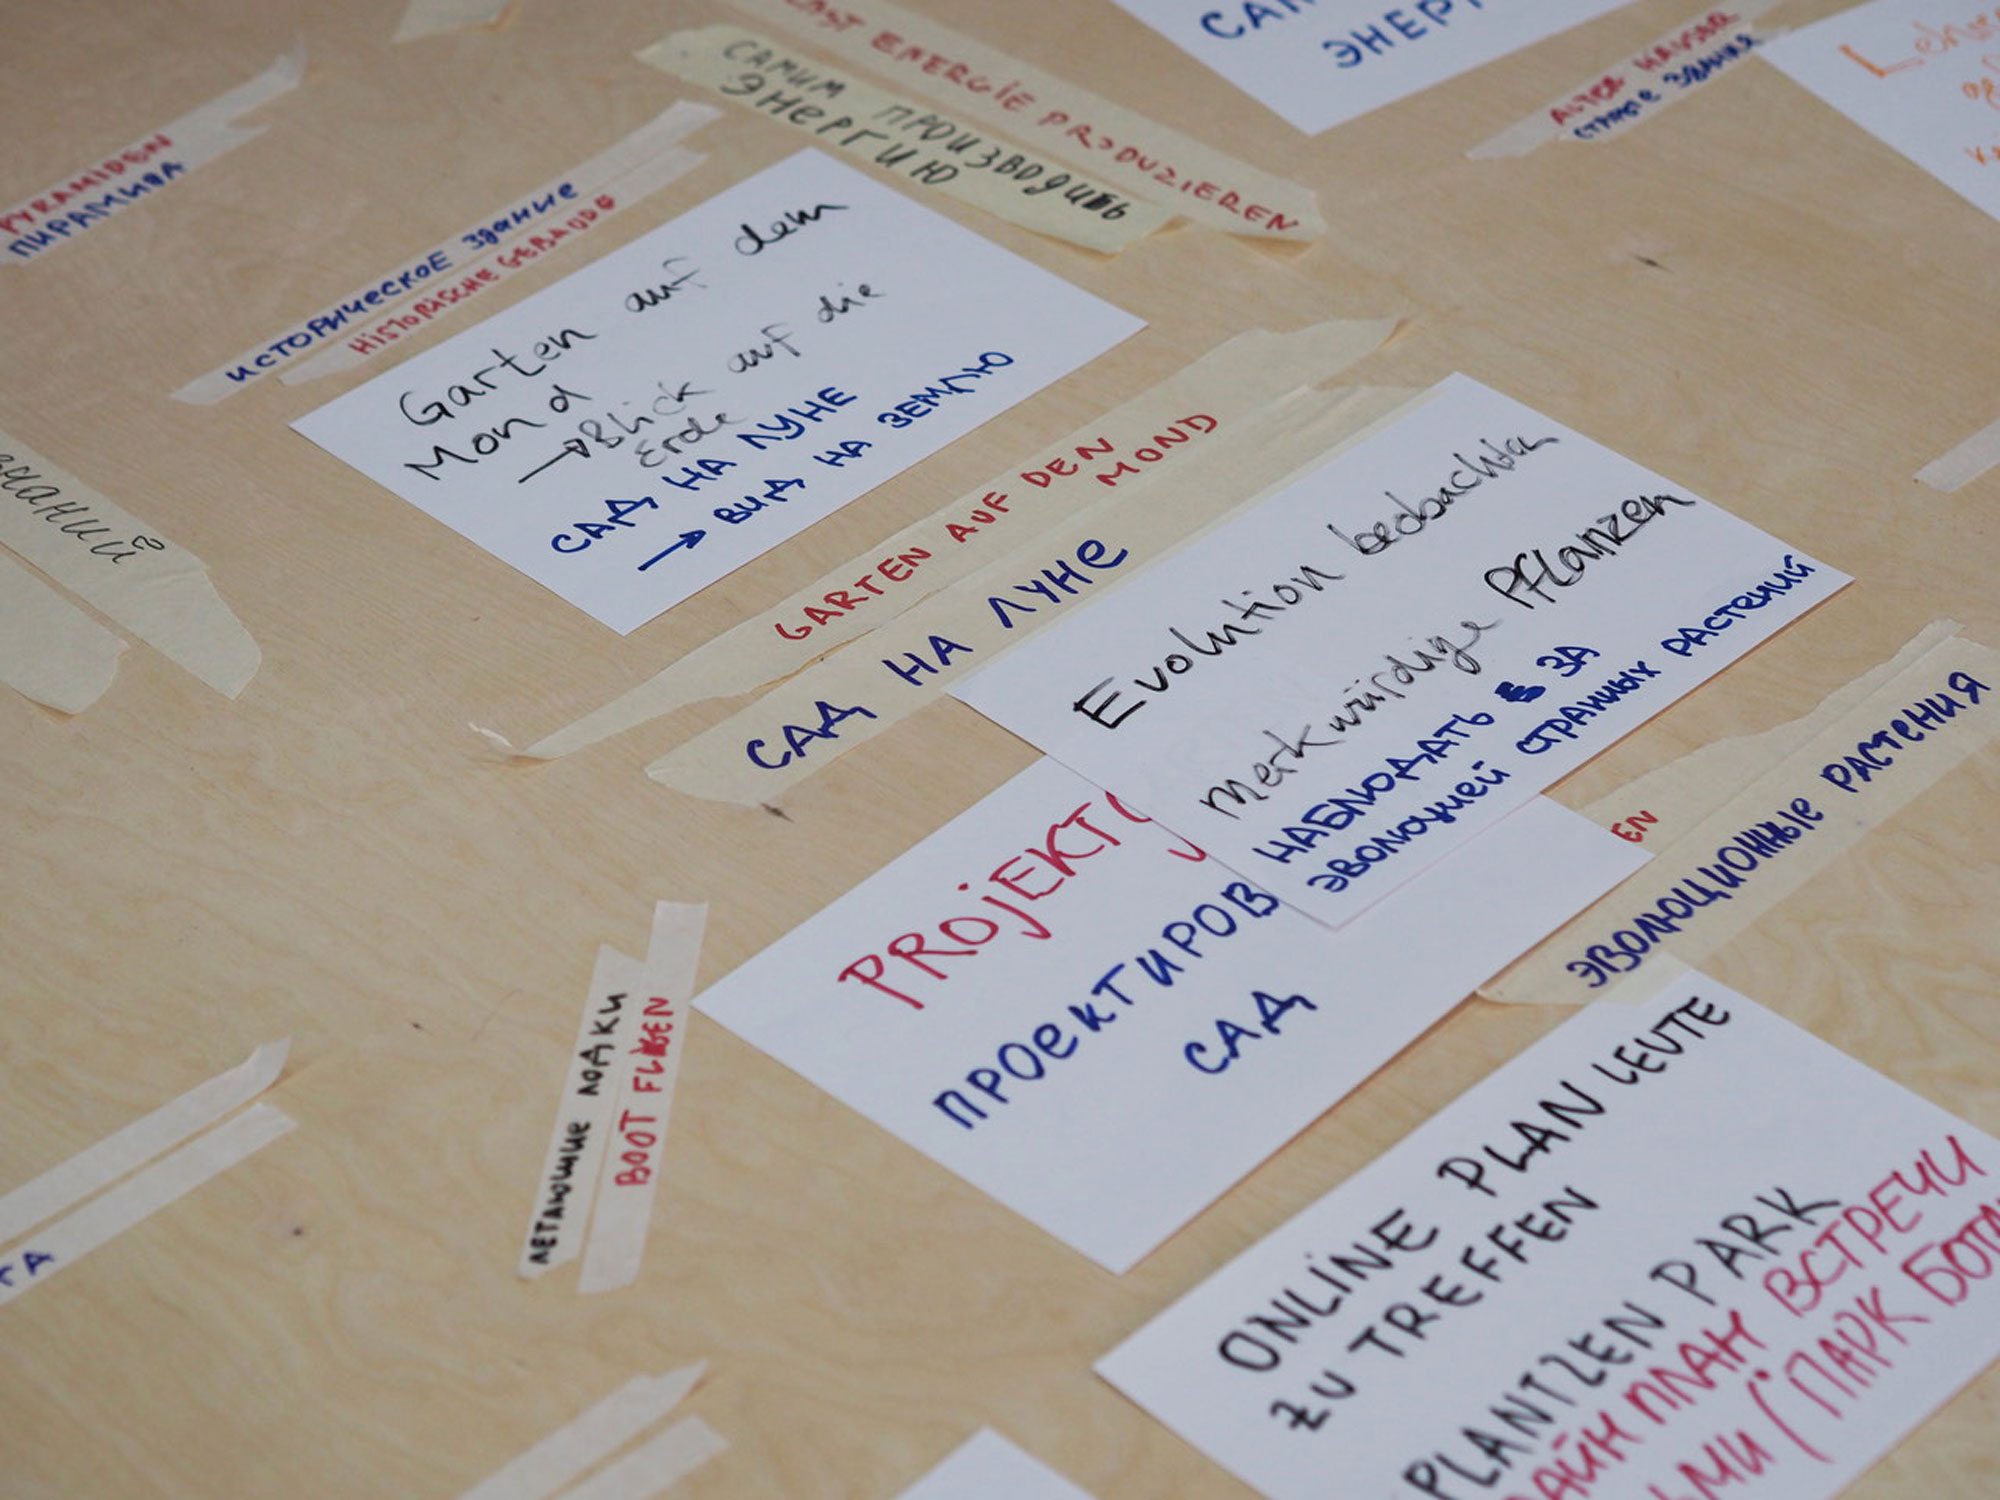 ENERGIE PRODUZIEREN
САМИМ ПРОИЗВОДИТЬ
ЭНЕРГИЮ
ALTER HAUSER
СТАРЫЕ ЗДАНИЯ
PYRAMIDEN
ПИРАМИДА
ИСТОРИЧЕСКОЕ ЗДАНИЕ
HISTORISCHE GEBAUDE
Garten auf dem
Mond
→ Blick auf die
Erde
САД НА ЛУНЕ
→ ВИД НА ЗЕМЛЮ
GARTEN AUF DEN
MOND
САД НА ЛУНЕ
Evolution beobachten
merkwürdige Pflanzen
НАБЛЮДАТЬ ЗА
ЭВОЛЮЦИЕЙ СТРАННЫХ РАСТЕНИЙ
EN
ЭВОЛЮЦИОННЫЕ РАСТЕНИЯ
PROJEKT
ПРОЕКТИРОВ
САД
ЛЕТАЮЩИЕ ЛОДКИ
BOOT FLIGEN
ONLINE PLAN LEUTE
ZU TREFFEN
PLANTZEN PARK
АЙН ПЛАН ВСТРЕЧИ
ЬМИ (ПАРК БОТА